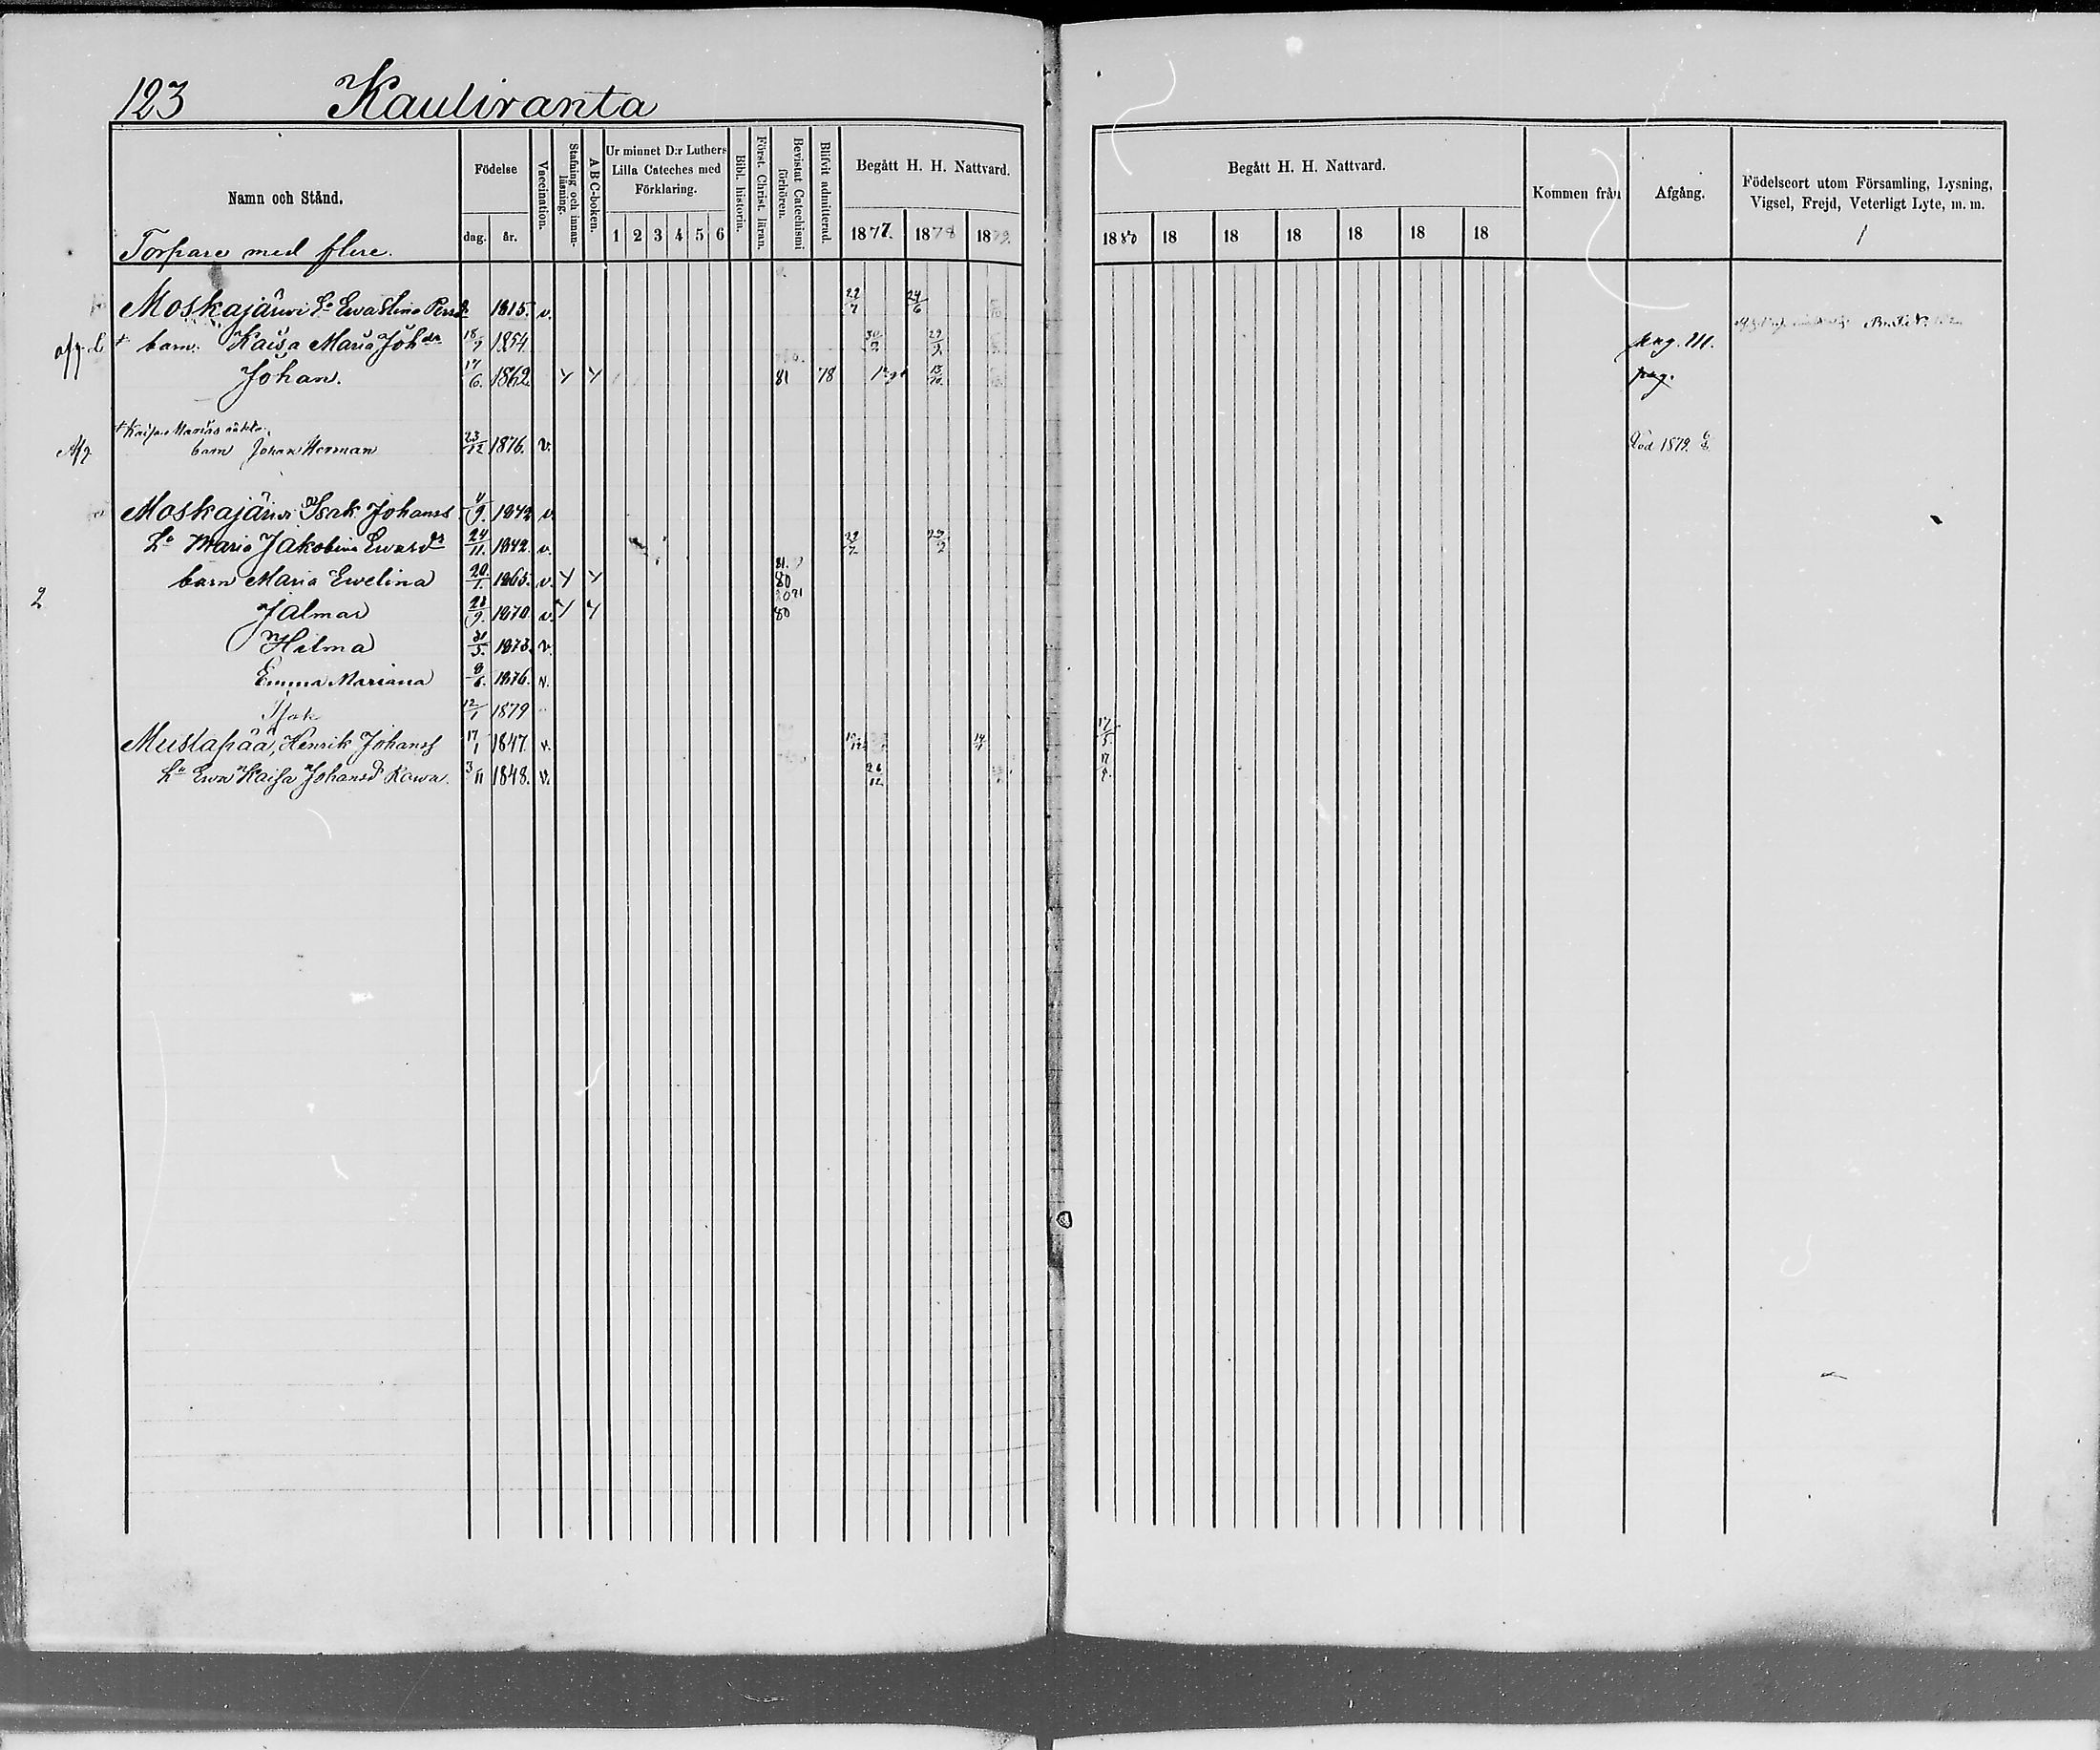 123 Kauliranta
Namn och Stånd. Födelse Vaccination. Stafning och innanläsning. A B C-boken. Ur minnet D:r Luthers Lilla Cateches med Förklaring. Bibl. historia. Först. Christ. läran. Bevistat Catechismi förhören. Blifvit admitterad. Begått H. H. Nattvard. Begått H. H. Nattvard. Kommen från Afgång. Födelseort utom Församling, Lysning, Vigsel, Frejd, Veterligt Lyte, m. m.
dag. år. 1 2 3 4 5 6 1877. 1878 1879. 1880 18 18 18 18 18 18 1
Torpare med flere.
Moskajärwi Eva Stina Persdr 1815. v. 22/7 24/6
+ barn. Kaisa Maria Johdr 18/7 1854. 30/9 29/9 pag. 211.
Johan. 17/6. 1862 Y Y 81 78 13/10 pag.
+ Kaisa Marias oäkta
Afg barn Johan Herman 23/12 1876. v. Död 1879.
Moskajärwi Isak Johanss 4/9. 1842 v.
Hu Maria Jakobina Ewardr 24/11. 1842. v. 22/7
barn Maria Ewelina 20/1. 1865. v. Y Y 81. 80
2 Jalmar 28/9. 1870. v. Y Y 80
Hilma 31/5. 1873. v.
Emma Mariana 8/6. 1876. v.
Isak 12/1 1879
Mustapää, Henrik Johanss 17/1 1847. v. 14/1 17/5.
Hu Ewa Kaisa Johansd Kawa. 3/11 1848. v. 26/12